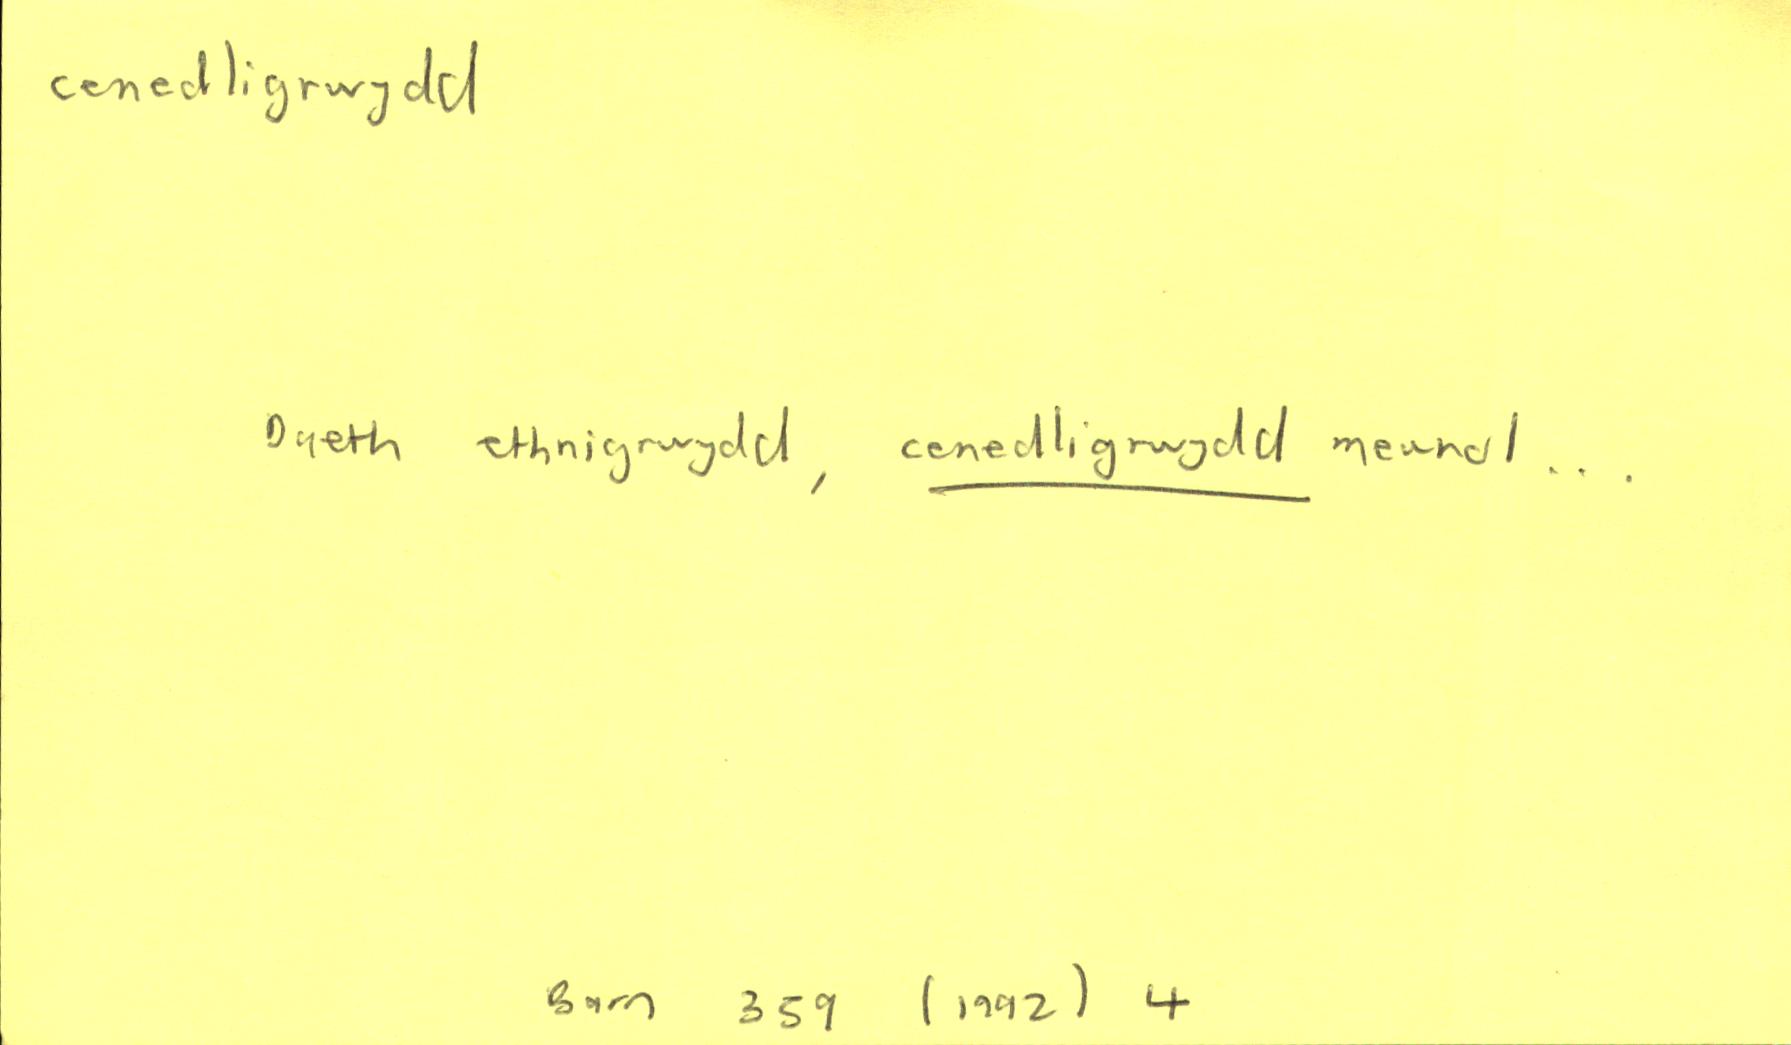 cenedligrwydd
Daeth ethnigrwydd, cenedligrwydd mewnol...
Barn 359 (1992) 4